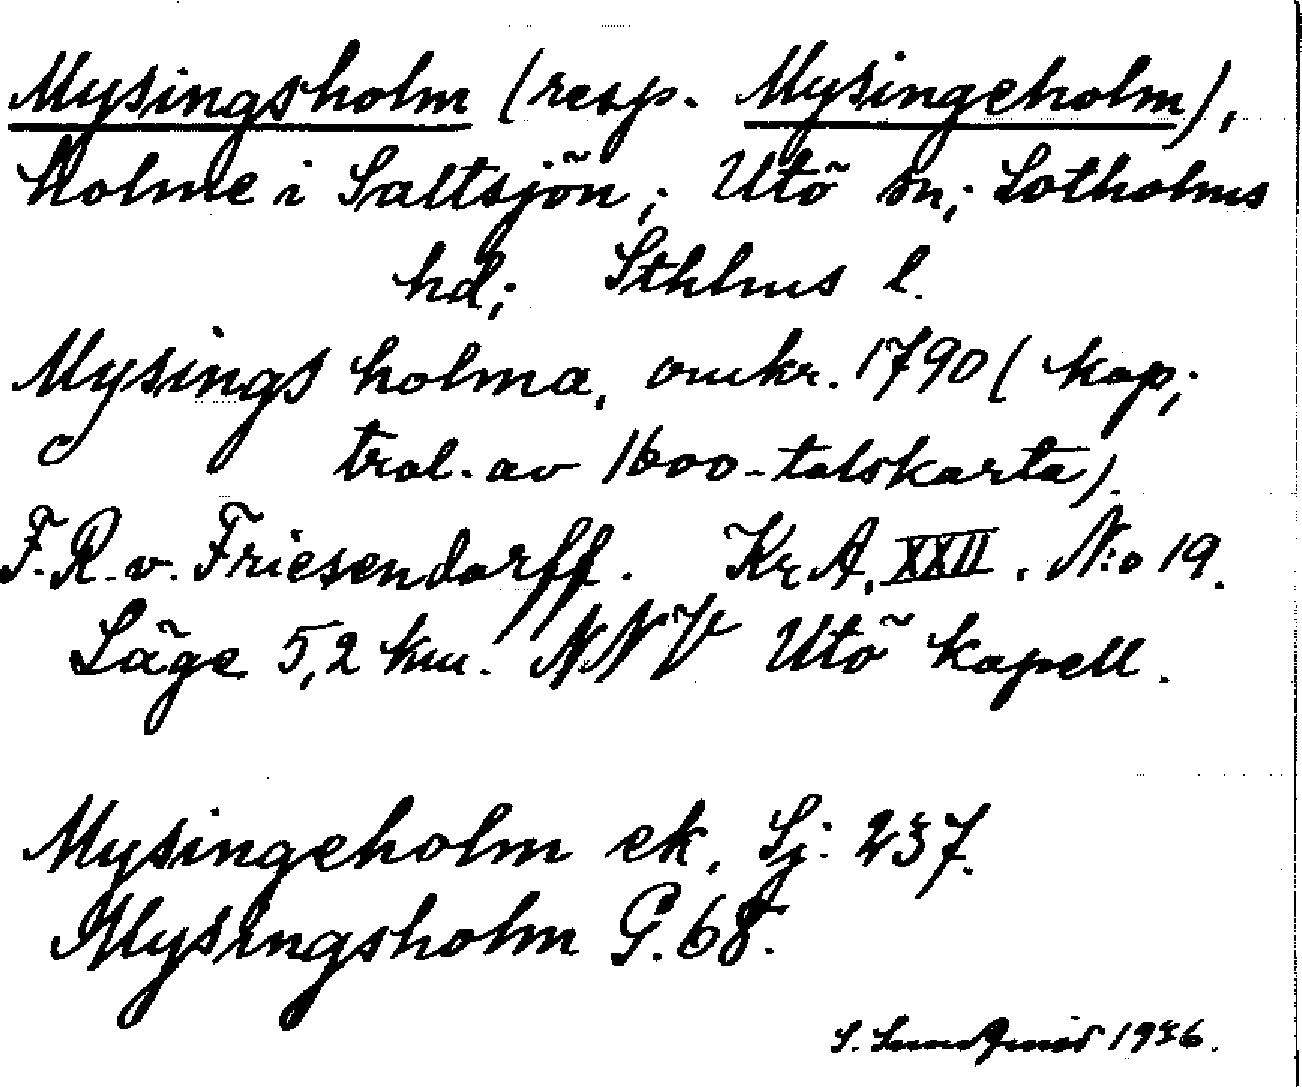 Mysingsholm (resp. Mysingeholm),
holme i Saltsjön; Utö sn; Sotholms
hd; Sthlms l.
Mysings holma, omkr. 1790 (kop;
trol. av 1600-talskarta).
F. R. v. Friesendorff. Kr. A. XXII. N:o 19.
Läge 5,2 km. NNV Utö kapell.
Mysingeholm ek. Sj: 237.
Mysingsholm G. 68.
S. 19